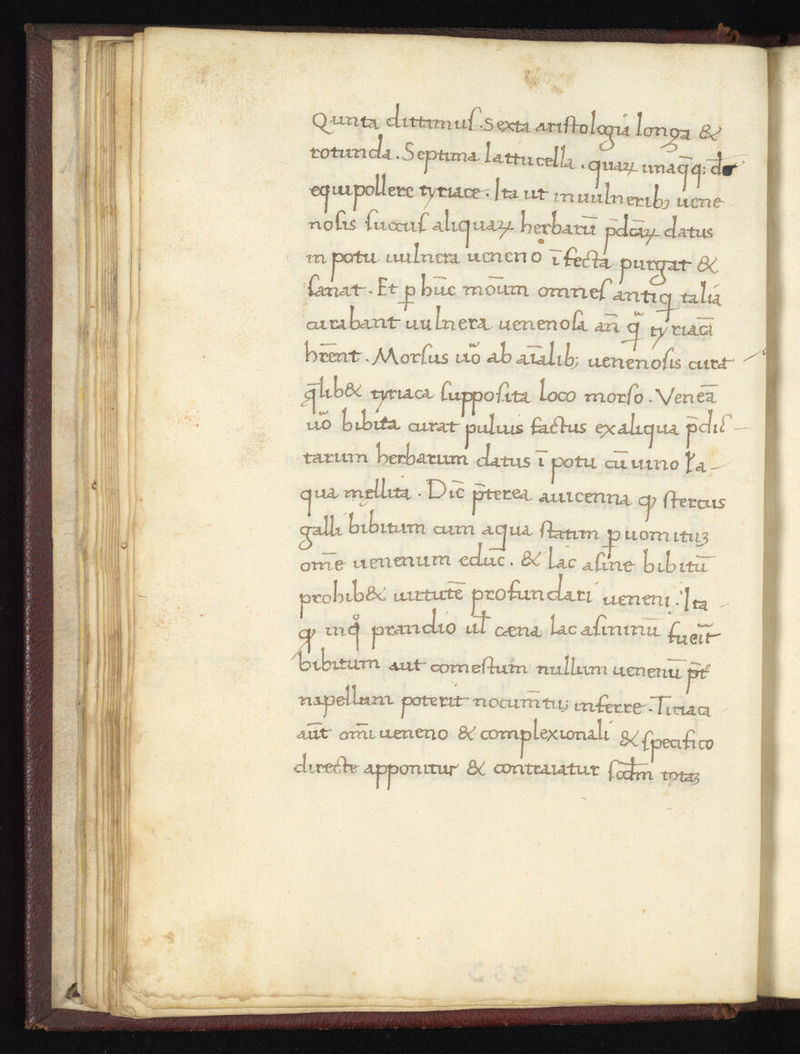 Qunta dittamus. Sexta aristologia longa &
rotunda. Septima lattucella. quaꝝ unaq̄q;
equipollere tyriace. Ita ut in uulnerib; uene
nosis succus aliquaꝝ herbarū p̄dcāꝝ datus
in potu uulnera ueneno īfecta purgat &
sanat. Et ꝑ hūc moūm omnes antiq talia
curabant uulnera uenenosa añ q̄ tyriacā
hr̄ent. Morsus uo ab aīalib; uenenosis curat
q̄lib& tyriaca supposita loco morso. Venēa
uo bibita curat puluis factus ex aliqua p̄dic
tarum herbarum datus ī potu cū uino ł a
qua mellita. Dic̄ p̄terea auicenna ꝙ stercus
galli bibitum cum aqua statim ꝑ uomitūꝫ
om̄e uenenum educ̄. & lac asine bibitū
prohib& uirtutē profundari ueneni. Ita
ꝙ inqͦ prandio ul̄ cæna lac asininū fueit̄
bibitum aut comestum nullum uenenū p̄t
napellum poterit nocum̄tuꝫ inferre. Tiriaca
aūt om̄i ueneno & complexionali & specifico
directe apponitur & contraiatur scd̄m totaꝫ